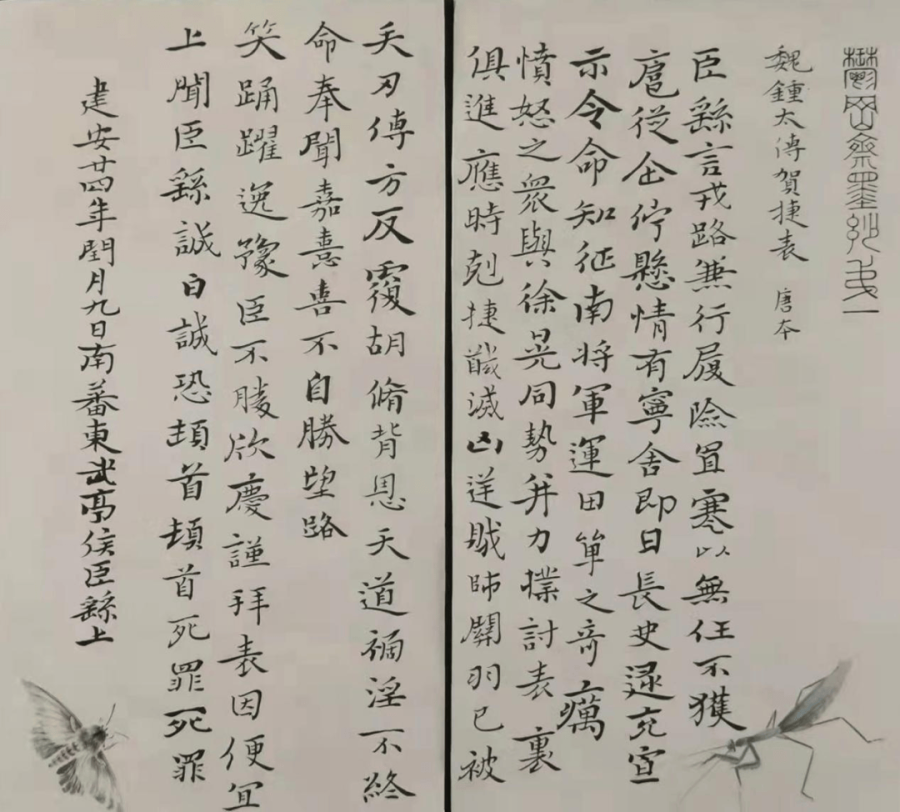 鬱岡齋墨妙弟一
魏鍾太傅賀捷表 唐本
臣繇言戎路兼行履險冒寒以無任不獲
扈從企佇懸情有寧舍即日長史逯充宣
示令命知征南將軍運田單之奇厲
憤怒之眾與徐晃同勢并力撲討表裏
俱進應時剋捷馘滅凶逆賊帥關羽已被
矢刃傅方反覆胡脩背恩天道禍淫不終
命奉聞嘉憙喜不自勝望路
笑踊躍逸豫臣不勝欣慶謹拜表因便宜
上聞臣繇誠白誠恐頓首頓首死罪死罪
建安廿四年閏月九日南蕃東武亭侯臣繇上